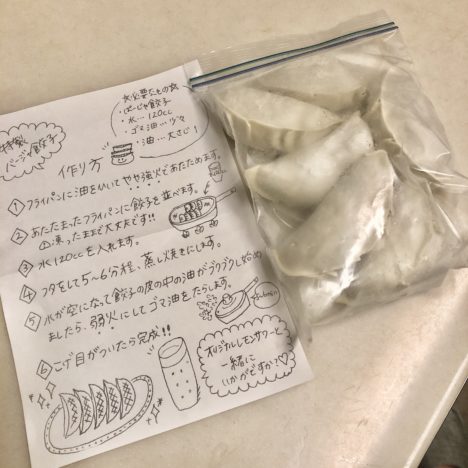 特製
パージャ餃子
☆必要なもの☆
・ぱーじゃ餃子
・水…120cc
・ゴマ油…少々
・油…大さじ1
作り方
1 フライパンに油をひいてやや強火であたためます。
2 あたたまったフライパンに餃子を並べます。
⚠凍ったままで大丈夫です!!
3 水120ccを入れます。
4 フタをして5〜6分程、蒸し焼きにします。
5 水が空になって餃子の皮の中の油がブクブクし始め
ましたら、弱火にしてゴマ油をたらします。
6 こげ目がついたら完成!!
オリジナルレモンサワーと
一緒に
いかがですかっ♡